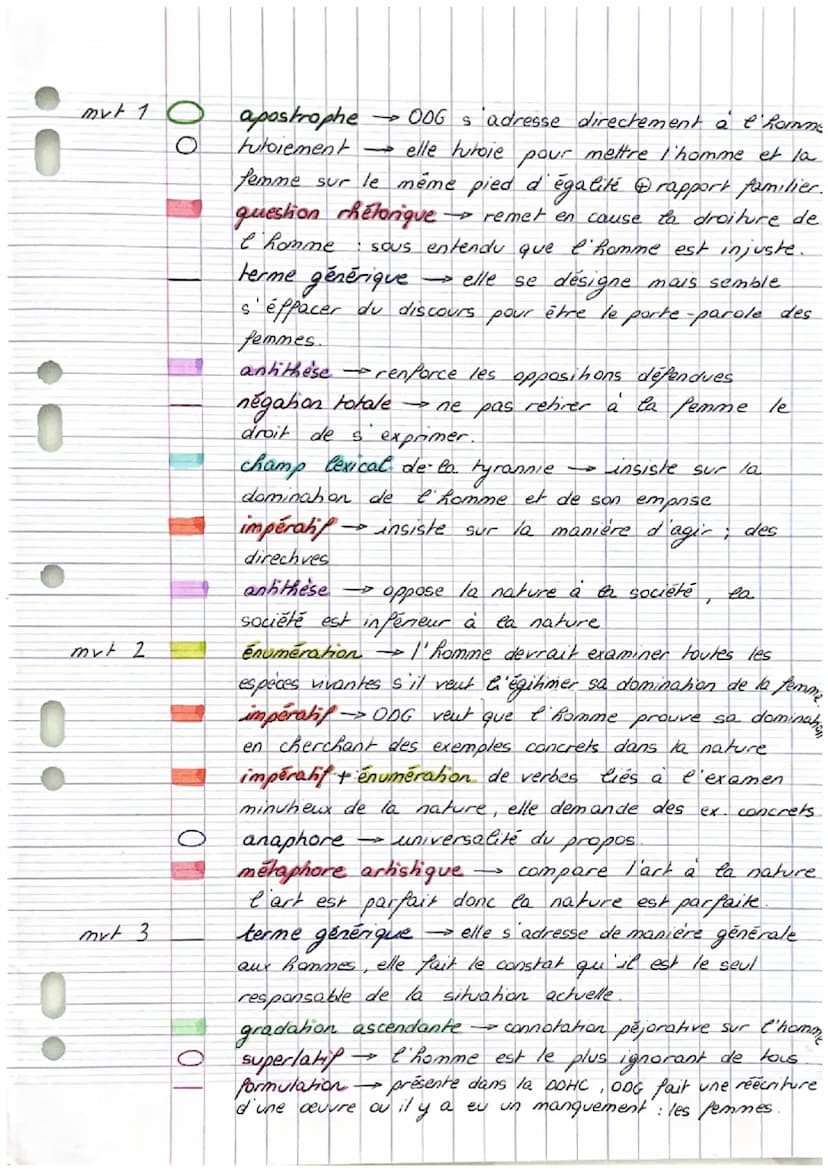 mvt 1 apostrophe → ODG s'adresse directement à l'homme
tutoiement → elle tutoie pour mettre l'homme et la
femme sur le même pied d'égalité ⊕ rapport familier.
question rhétorique → remet en cause la droiture de
l'homme : sous entendu que l'homme est injuste.
terme générique → elle se désigne mais semble
s'éffacer du discours pour être le porte-parole des
femmes.
antithèse → renforce les oppositions défendues
négation totale → ne pas retirer à la femme le
droit de s'exprimer.
champ lexical de la tyrannie → insiste sur la
domination de l'homme et de son emprise
impératif → insiste sur la manière d'agir ; des
directives
antithèse → oppose la nature à la société, la
société est inférieur à la nature
mvt 2 énumération → l'homme devrait examiner toutes les
espèces vivantes s'il veut légitimer sa domination de la femme
impératif → ODG veut que l'homme prouve sa domination
en cherchant des exemples concrets dans la nature
impératif + énumération de verbes liés à l'examen
minutieux de la nature, elle demande des ex. concrets
anaphore → universalité du propos.
métaphore artistique → compare l'art à la nature
l'art est parfait donc la nature est parfaite.
mvt 3 terme générique → elle s'adresse de manière générale
aux hommes, elle fait le constat qu'il est le seul
responsable de la situation actuelle.
gradation ascendante → connotation péjorative sur l'homme
superlatif → l'homme est le plus ignorant de tous
formulation → présente dans la DDHC, ODG fait une réécriture
d'une œuvre où il y a eu un manquement : les femmes.